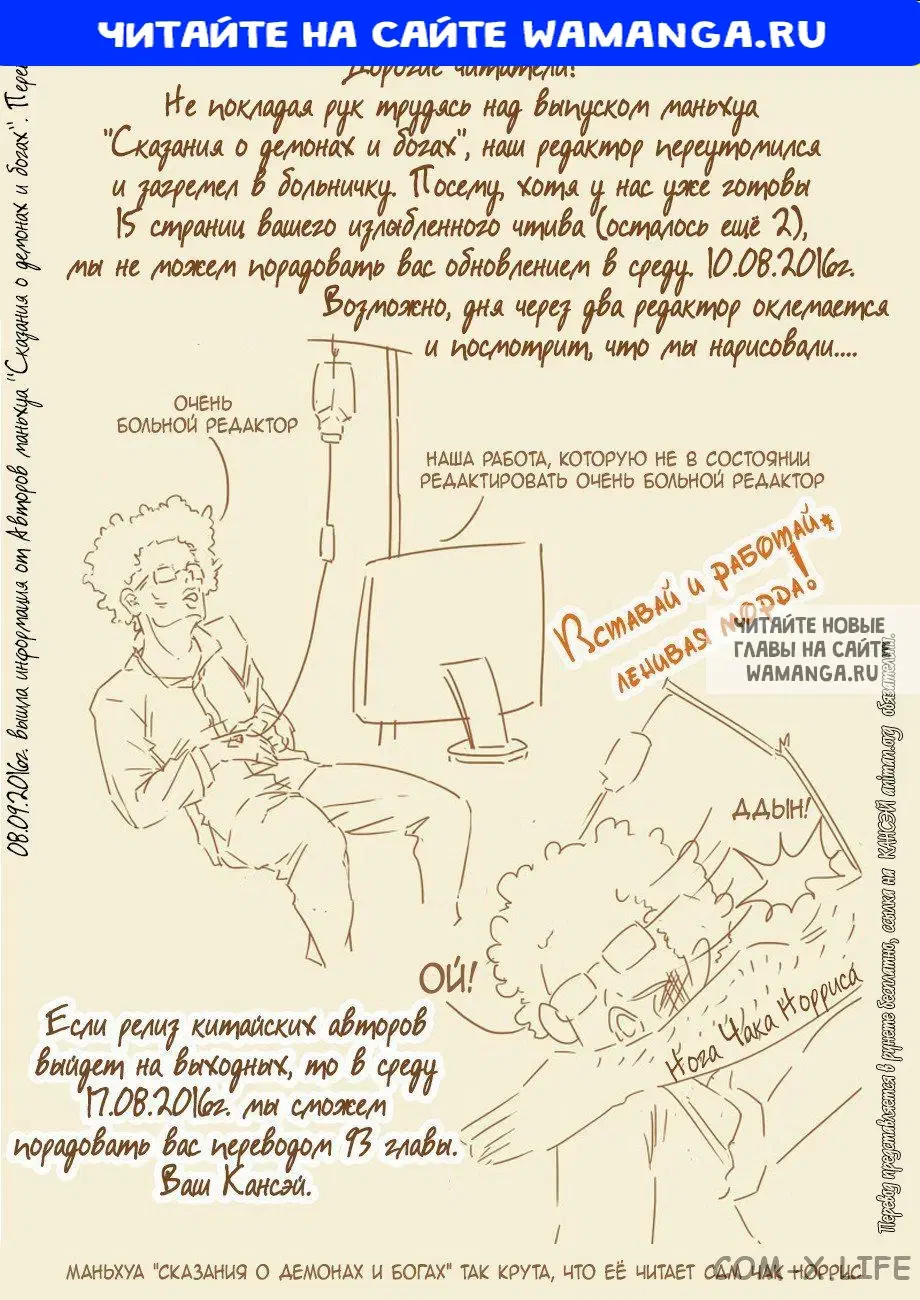 ЧИТАЙТЕ НА САЙТЕ WAMANGA.RU
Дорогие читатели!
Не покладая рук трудясь над выпуском маньхуа
"Сказания о демонах и богах", наш редактор переутомился
и загремел в больничку. Посему, хотя у нас уже готовы
15 страниц вашего излюбленного чтива (осталось ещё 2),
мы не можем порадовать вас обновлением в среду. 10.08.2016г.
Возможно, дня через два редактор оклемается
и посмотрит, что мы нарисовали....
08.09.2016г. вышла информация от Авторов маньхуа "Сказания о демонах и богах".
ОЧЕНЬ
БОЛЬНОЙ РЕДАКТОР
НАША РАБОТА, КОТОРУЮ НЕ В СОСТОЯНИИ
РЕДАКТИРОВАТЬ ОЧЕНЬ БОЛЬНОЙ РЕДАКТОР
Вставай и работай,
ленивая морда!
ЧИТАЙТЕ НОВЫЕ
ГЛАВЫ НА САЙТЕ
WAMANGA.RU
ДДЫН!
ОЙ!
Нога Чака Норриса
Если релиз китайских авторов
выйдет на выходных, то в среду
17.08.2016г. мы сможем
порадовать вас переводом 93 главы.
Ваш Кансэй.
Перевод представляется в рунете бесплатно, ссылка на КАНСЭЙ animan.org обязательна.
МАНЬХУА "СКАЗАНИЯ О ДЕМОНАХ И БОГАХ" ТАК КРУТА, ЧТО ЕЁ ЧИТАЕТ САМ ЧАК НОРРИС
COM-X.LIFE